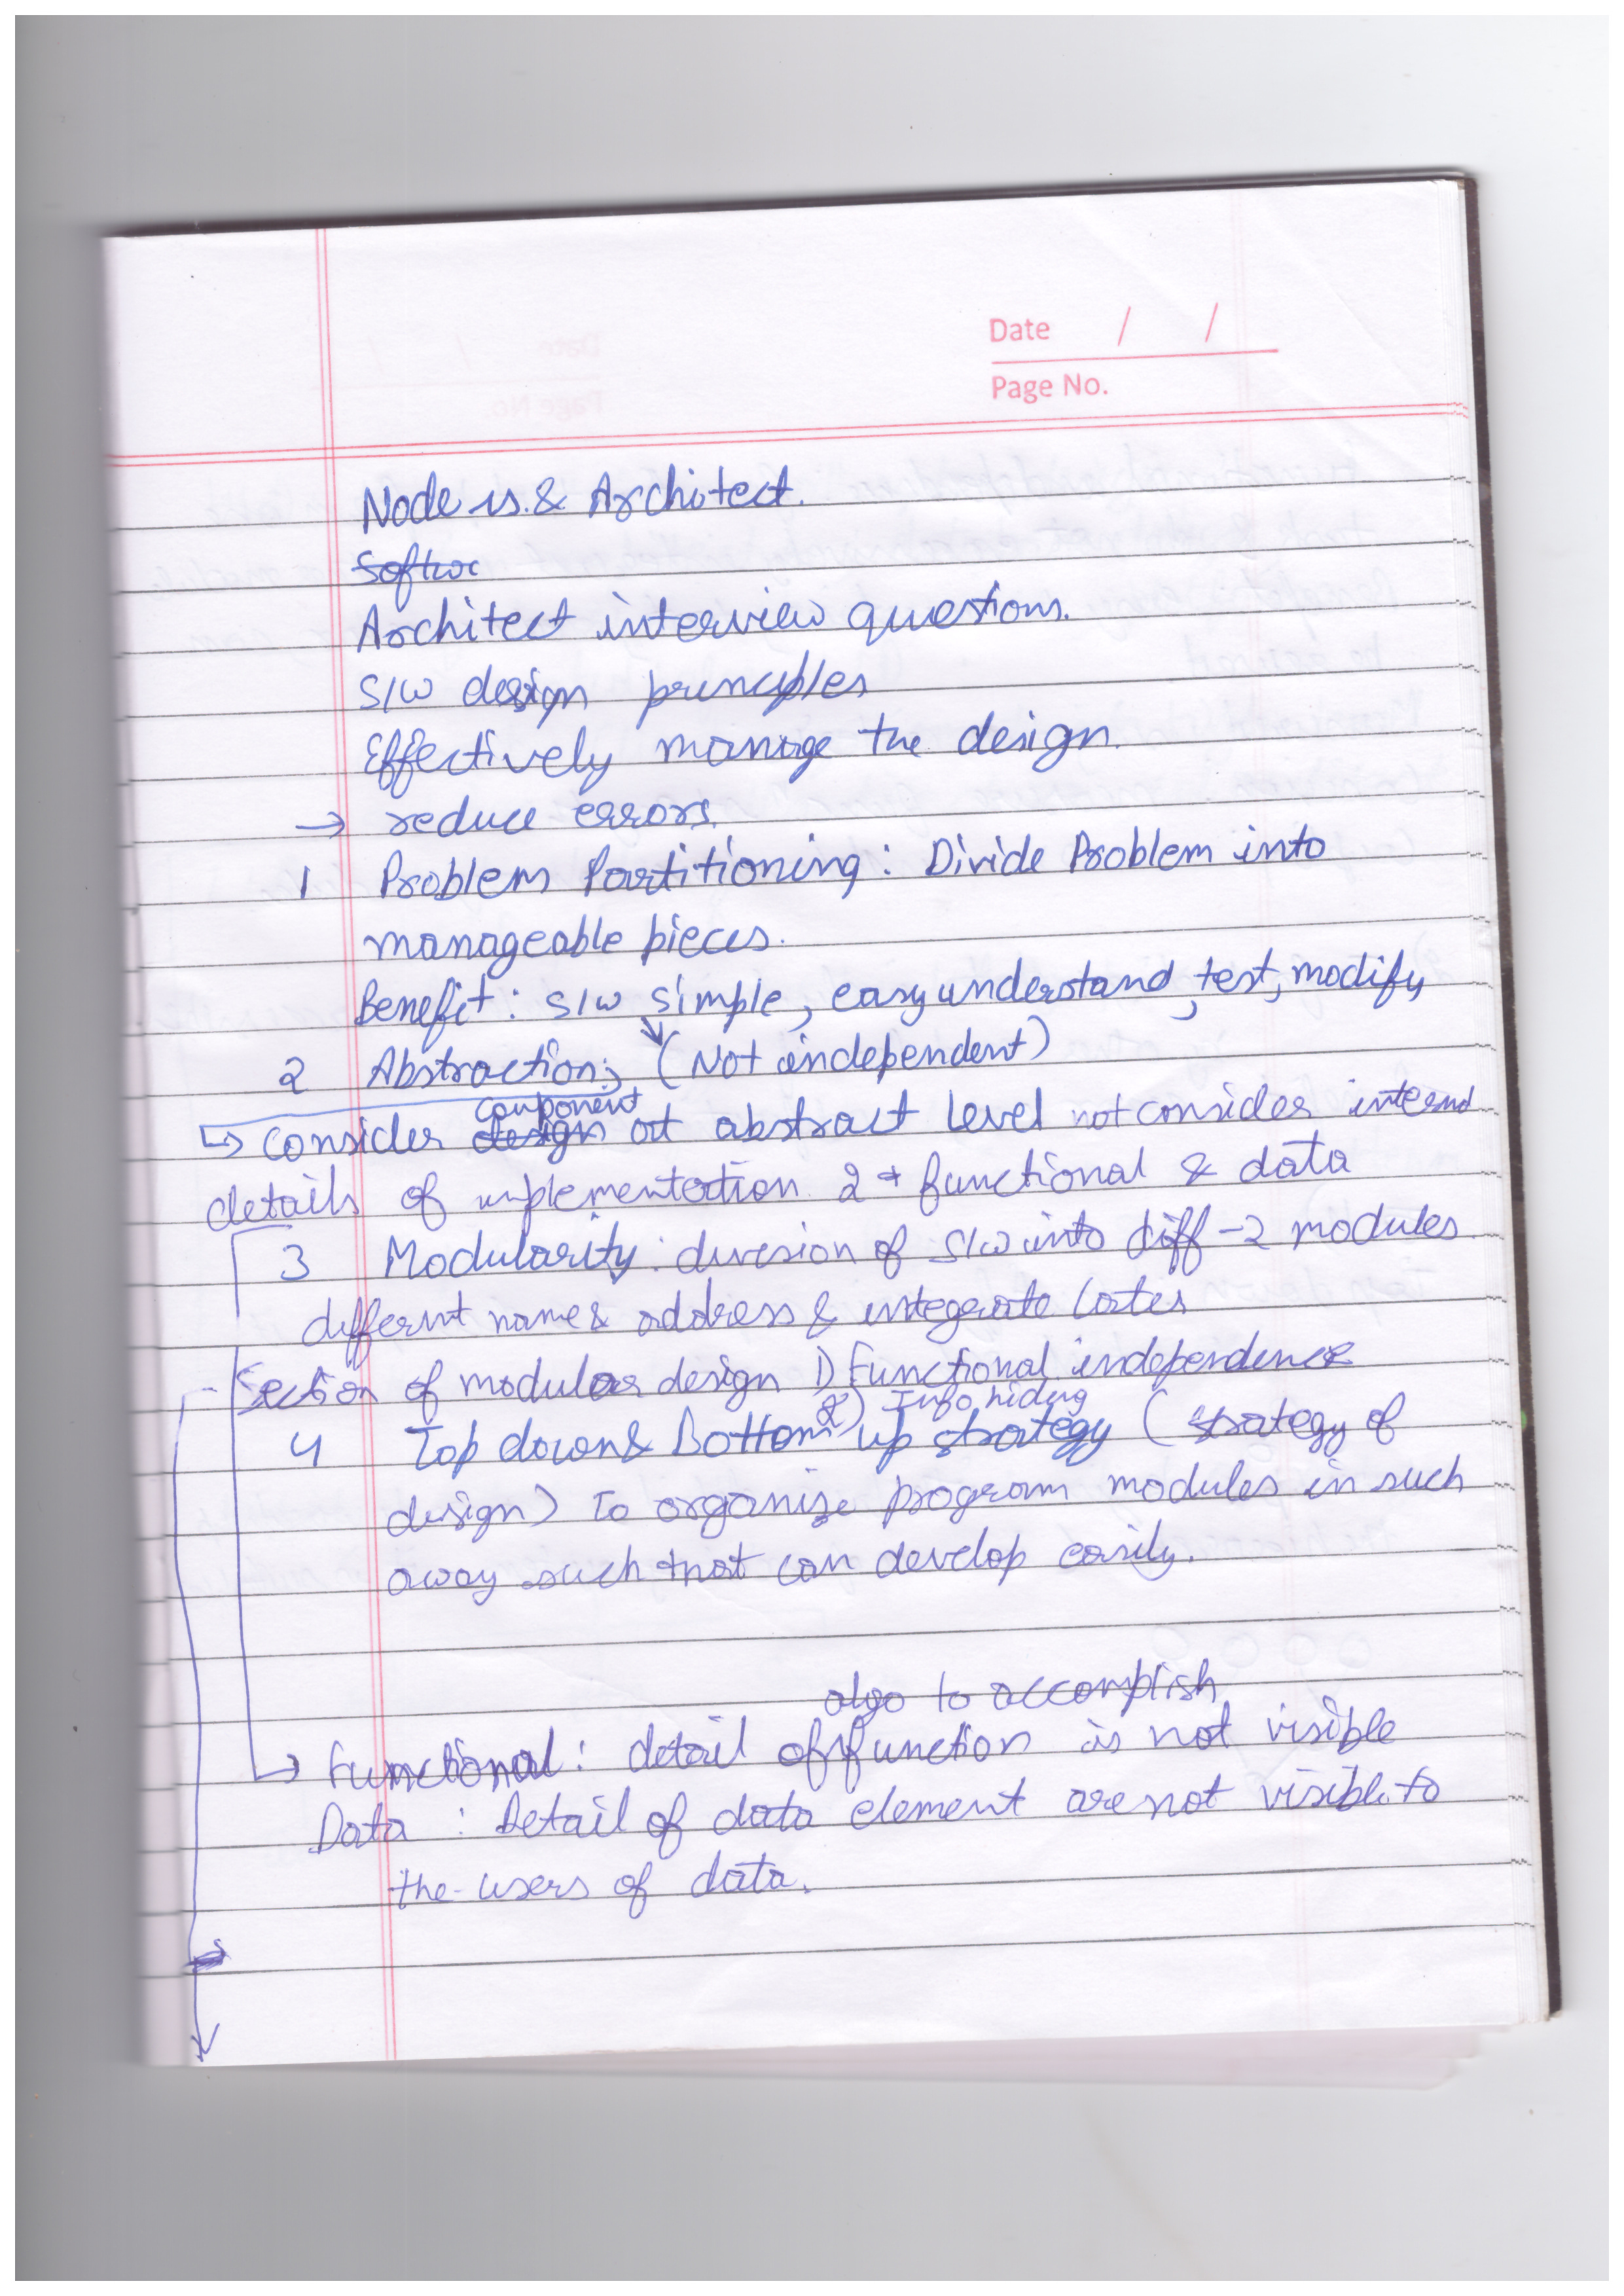 Date / /
Page No.
Node js & Architect.
Softwc
Architect interview questions.
S/W design principles
Effectively manage the design.
→ reduce errors.
1 Problem Partitioning : Divide Problem into
manageable pieces.
Benefit : S/W simple, easy understand, test, modify
2 Abstraction; (Not independent)
component
↳ consider design at abstract level not consider internal
details of implementation 2 functional & data
3 Modularity : division of S/W into diff-2 modules.
different name & address & integrate later
Section of modular design 1) Functional independence
2) Info hiding
4 Top down & Bottom up strategy (strategy of
design) to organize program modules in such
away such that can develop easily.
algo to accomplish
↳ Functional : detail of function is not visible
Data : Detail of data element are not visible to
the users of data.